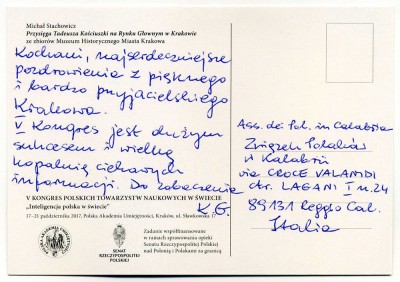 Michał Stachowicz
Przysięga Tadeusza Kościuszki na Rynku Głównym w Krakowie
ze zbiorów Muzeum Historycznego Miasta Krakowa
Kochani, najserdeczniejsze
pozdrowienia z pięknego
i bardzo przyjacielskiego
Krakowa.
V Kongres jest dużym
sukcesem i wielką
kopalnią ciekawych
informacji. Do zobaczenia
K.G.
V KONGRES POLSKICH TOWARZYSTW NAUKOWYCH W ŚWIECIE
"Inteligencja polska w świecie"
17-21 października 2017, Polska Akademia Umiejętności, Kraków, ul. Sławkowska 17
SENAT
RZECZYPOSPOLITEJ
POLSKIEJ
Zadanie współfinansowane
w ramach sprawowania opieki
Senatu Rzeczypospolitej Polskiej
nad Polonią i Polakami za granicą
Ass. dei Pol. in Calabria
Związek Polaków
w Kalabrii
via CROCE VALANIDI
dir. LAGANI I n. 24
89131 Reggio Cal.
Italia